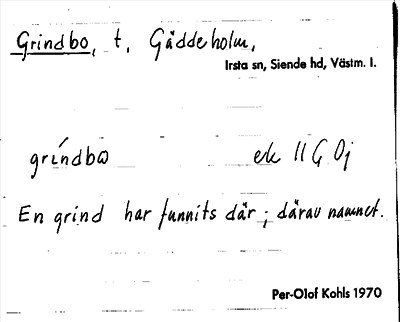 Grindbo, t. Gäddeholm,
Irsta sn, Siende hd, Västm. l.
gríndbɷ ek II G Oj
En grind har funnits där; därav namnet.
Per-Olof Kohls 1970